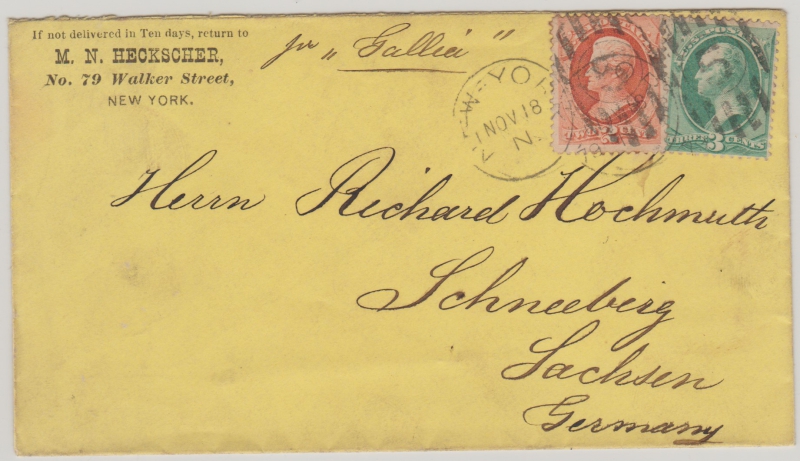 If not delivered in Ten days, return to
M. N. HECKSCHER,
No. 79 Walker Street,
NEW YORK.
per "Gallia"
NEW-YORK
NOV 18
N
THREE 3 CENTS
Herrn Richard Hochmuth
Schneeberg
Sachsen
Germany